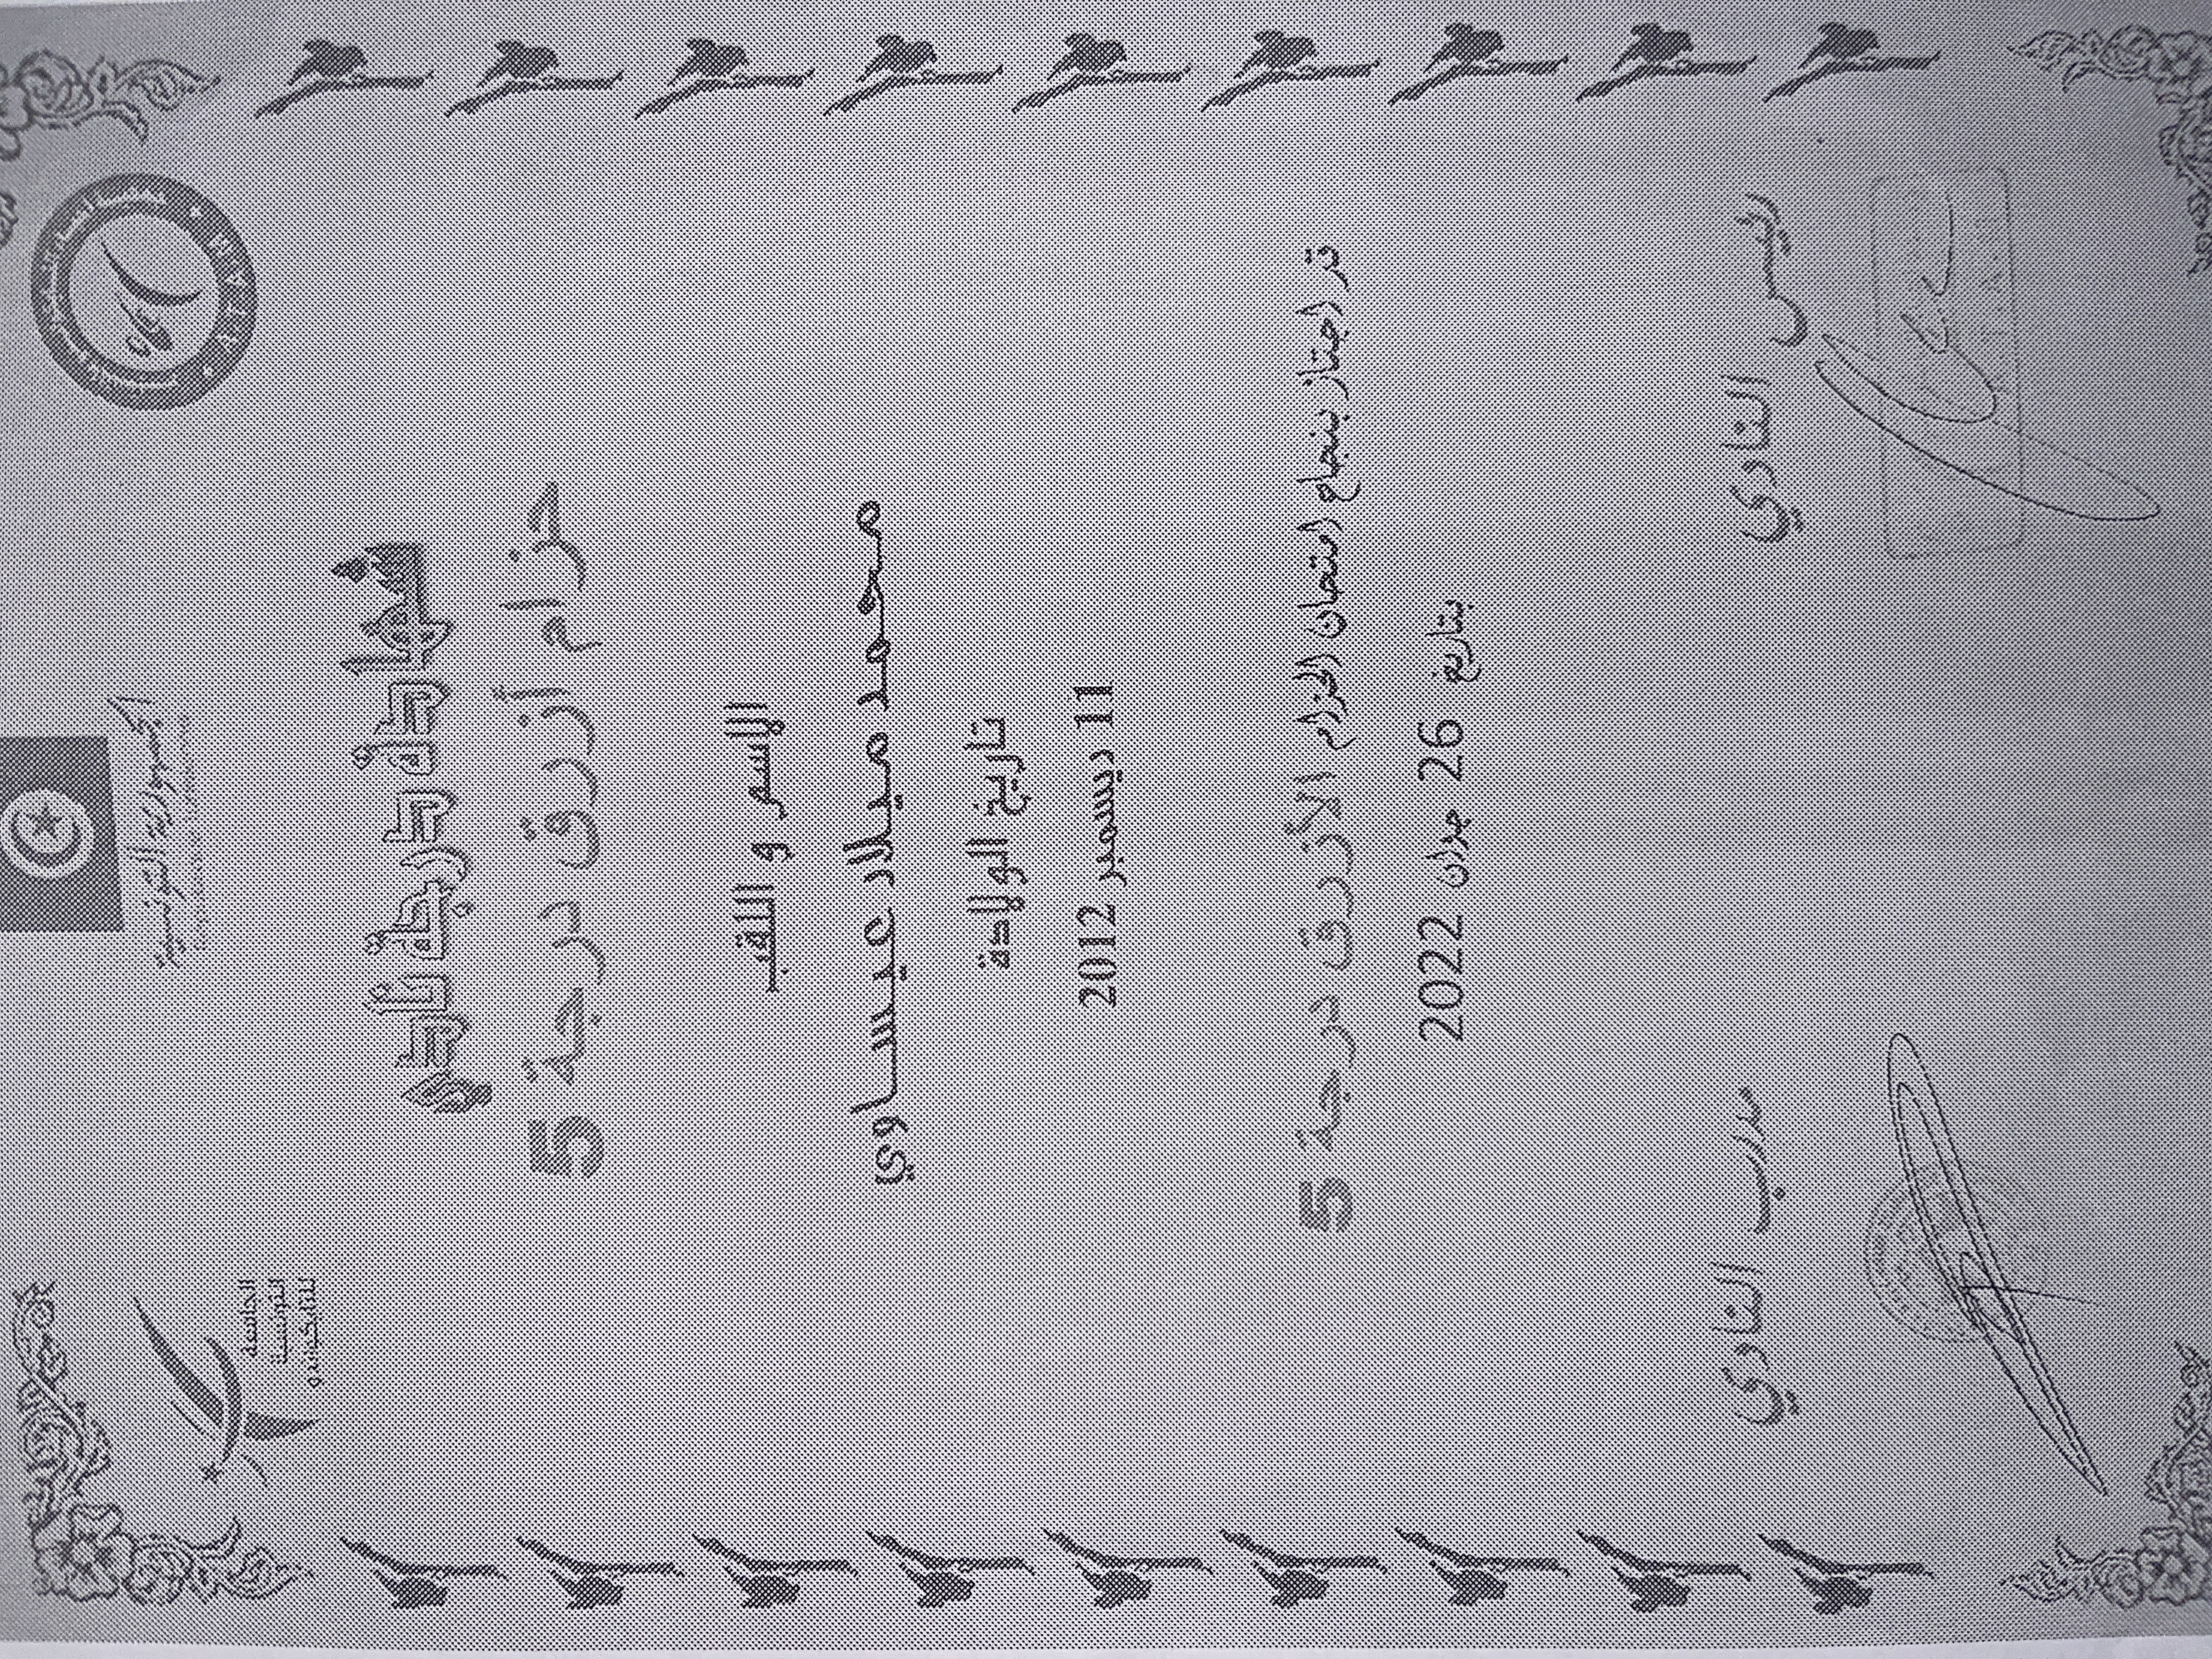 الجمهورية التونسية
الجامعة
التونسية
للتايكواندو
شهادة درجة
حزام أزرق درجة 5
الإسم و اللقب
محمد ميلاد عيساوي
تاريخ الولادة
11 ديسمبر 2012
قد اجتاز بنجاح امتحان الحزام الأزرق درجة 5
بتاريخ 26 جوان 2022
رئيس النادي
مدرب النادي